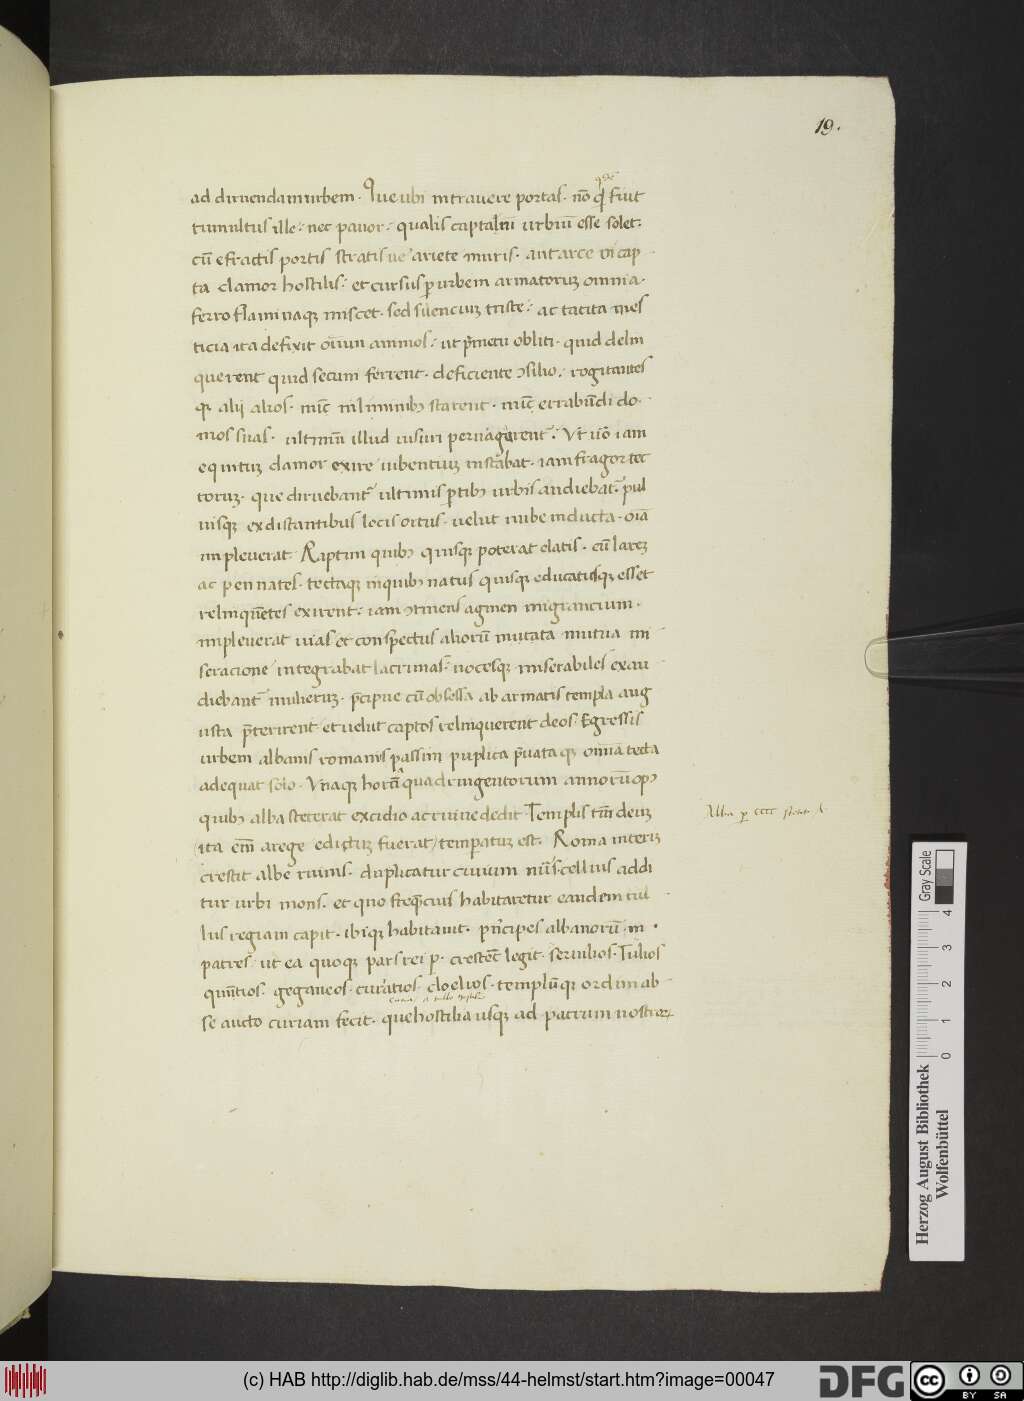 19.
ad diruendam urbem. Que ubi intrauere portas. nō qđ fuit
tumultus ille: nec pauor: qualis captarū urbiū esse solet:
cū efractis portis stratis ue ariete muris. aut arce vi cap
ta clamor hostilis: et cursus p urbem armatoruꝫ omnia.
ferro flāmaqꝫ miscet. sed silenciuꝫ triste: ac tacita mes
ticia ita defixit oīum animos: ut p̄ metu obliti. quid relin
querent quid secum ferrent. deficiente ↄsilio: rogitantes
qꝫ alij alios. nūc in liminibꝰ starent. nūc errabūdi do
mos suas. ultimū illud uisuri peruagarent˜. Vt ůo iam
equituꝫ clamor exire iubentiuꝫ instabat. iam fragor tec
toruꝫ. que diruebant˜ ultimis ꝑtibꝰ urbis audiebat˜. pul
uisqꝫ ex distantibus locis ortus. uelut nube inducta. oīa
impleuerat. Raptim quibꝰ quisqꝫ poterat elatis. cū lareꝫ
ac pennates. tectaqꝫ in quibꝰ natus quisqꝫ educatusqꝫ esset
relinquētes exirent: iam ↄtinens agmen migrancium.
impleuerat uias et conspectus alioru̅ mutata mutua mi
seracione integrabat lacrimas: uocesqꝫ miserabiles exau
diebant˜ mulieruꝫ. p̄cipue cū obsessa ab armatis templa aug
usta p̄terirent. et uelut captos relinquerent deos. Egressis
urbem albanis romanus passim puplica p̄uata qꝫ omnia tecta
adequat solo. Vnaqꝫ hora quadringentorum annorū opꝰ
quibꝰ alba steterat excidio ac ruine dedit. Templis tn̄ deuꝫ
ita em̄ a rege edictuꝫ fuerat temperatuꝫ est. Roma interiꝫ
crescit albe ruinis. duplicatur ciuium nūs. cellius addi
tur urbi mons. et quo freq̄ncius habitaretur eandem tul
lus regiam capit. ibiqꝫ habitauit. prīcipes albanorū in
patres. ut ea quoqꝫ pars rei p. cresceret legit. seruilios. Tulios
quīntios. geganeos. curiatios. cloelios. templūqꝫ ordini ab
se aucto curiam fecit. que hostilia usqꝫ ad patrum nostroꝝ